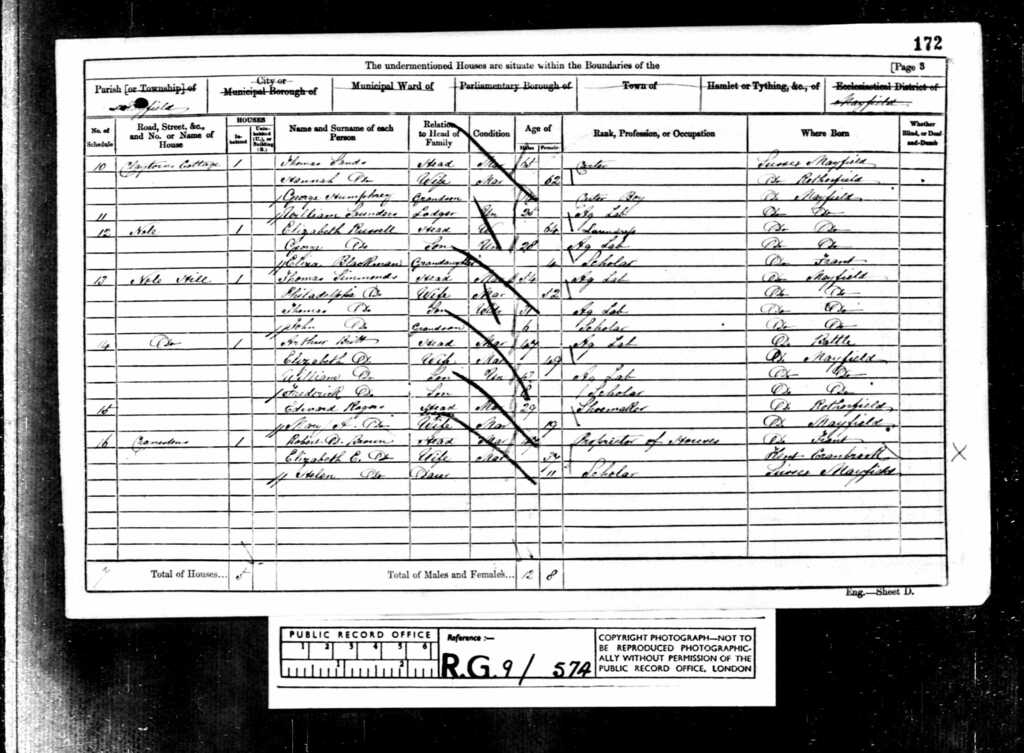 172
The undermentioned Houses are situate within the Boundaries of the [Page 3
Parish [or Township] of City or Municipal Borough of Municipal Ward of Parliamentary Borough of Town of Hamlet or Tything, &c., of Ecclesiastical District of
field Mayfield
No. of Schedule Road, Street, &c., and No. or Name of House HOUSES Inhabited Uninhabited (U.), or Building (B.) Name and Surname of each Person Relation to Head of Family Condition Age of Males Females Rank, Profession, or Occupation Where Born Whether Blind, or Deaf-and-Dumb
10 Cottage 1 Thomas Head Mar Carter Sussex Mayfield
Hannah Do Wife Mar 62 Do Rotherfield
George Humphrey Grandson Carter Boy Do Mayfield
11 William Lodger Un Ag Lab Do Do
12 1 Elizabeth Russell Head 64 Do Do
George Do Son Un 28 Ag Lab Do Do
Eliza Blackman Grandaughter Scholar Do Frant
13 Hill 1 Thomas Simmonds Head Mar 54 Ag Lab Do Mayfield
Philadelphia Do Wife Mar 52 Do Do
Thomas Do Son Ag Lab Do Do
John Do Grandson 6 Scholar Do Do
14 Do 1 Arthur Head Mar 47 Ag Lab Do Battle
Elizabeth Do Wife Mar 49 Do Mayfield
William Do Son Un Ag Lab Do Do
Frederick Do Son Scholar Do Do
15 Edward Rogers Head Mar 29 Shoemaker Do Rotherfield
Mary A. Do Wife Mar 19 Do Mayfield
16 1 Robert Brown Head Mar Proprietor of Houses Do Frant
Elizabeth E. Do Wife Mar Kent Cranbrook X
Helen Do Daur 11 Scholar Sussex Mayfield
Total of Houses... 5 Total of Males and Females... 12 8
Eng.—Sheet D.
PUBLIC RECORD OFFICE
1 2 3 4 5 6
1 2
Reference :—
R.G. 9/ 574
COPYRIGHT PHOTOGRAPH—NOT TO
BE REPRODUCED PHOTOGRAPHIC-
ALLY WITHOUT PERMISSION OF THE
PUBLIC RECORD OFFICE, LONDON